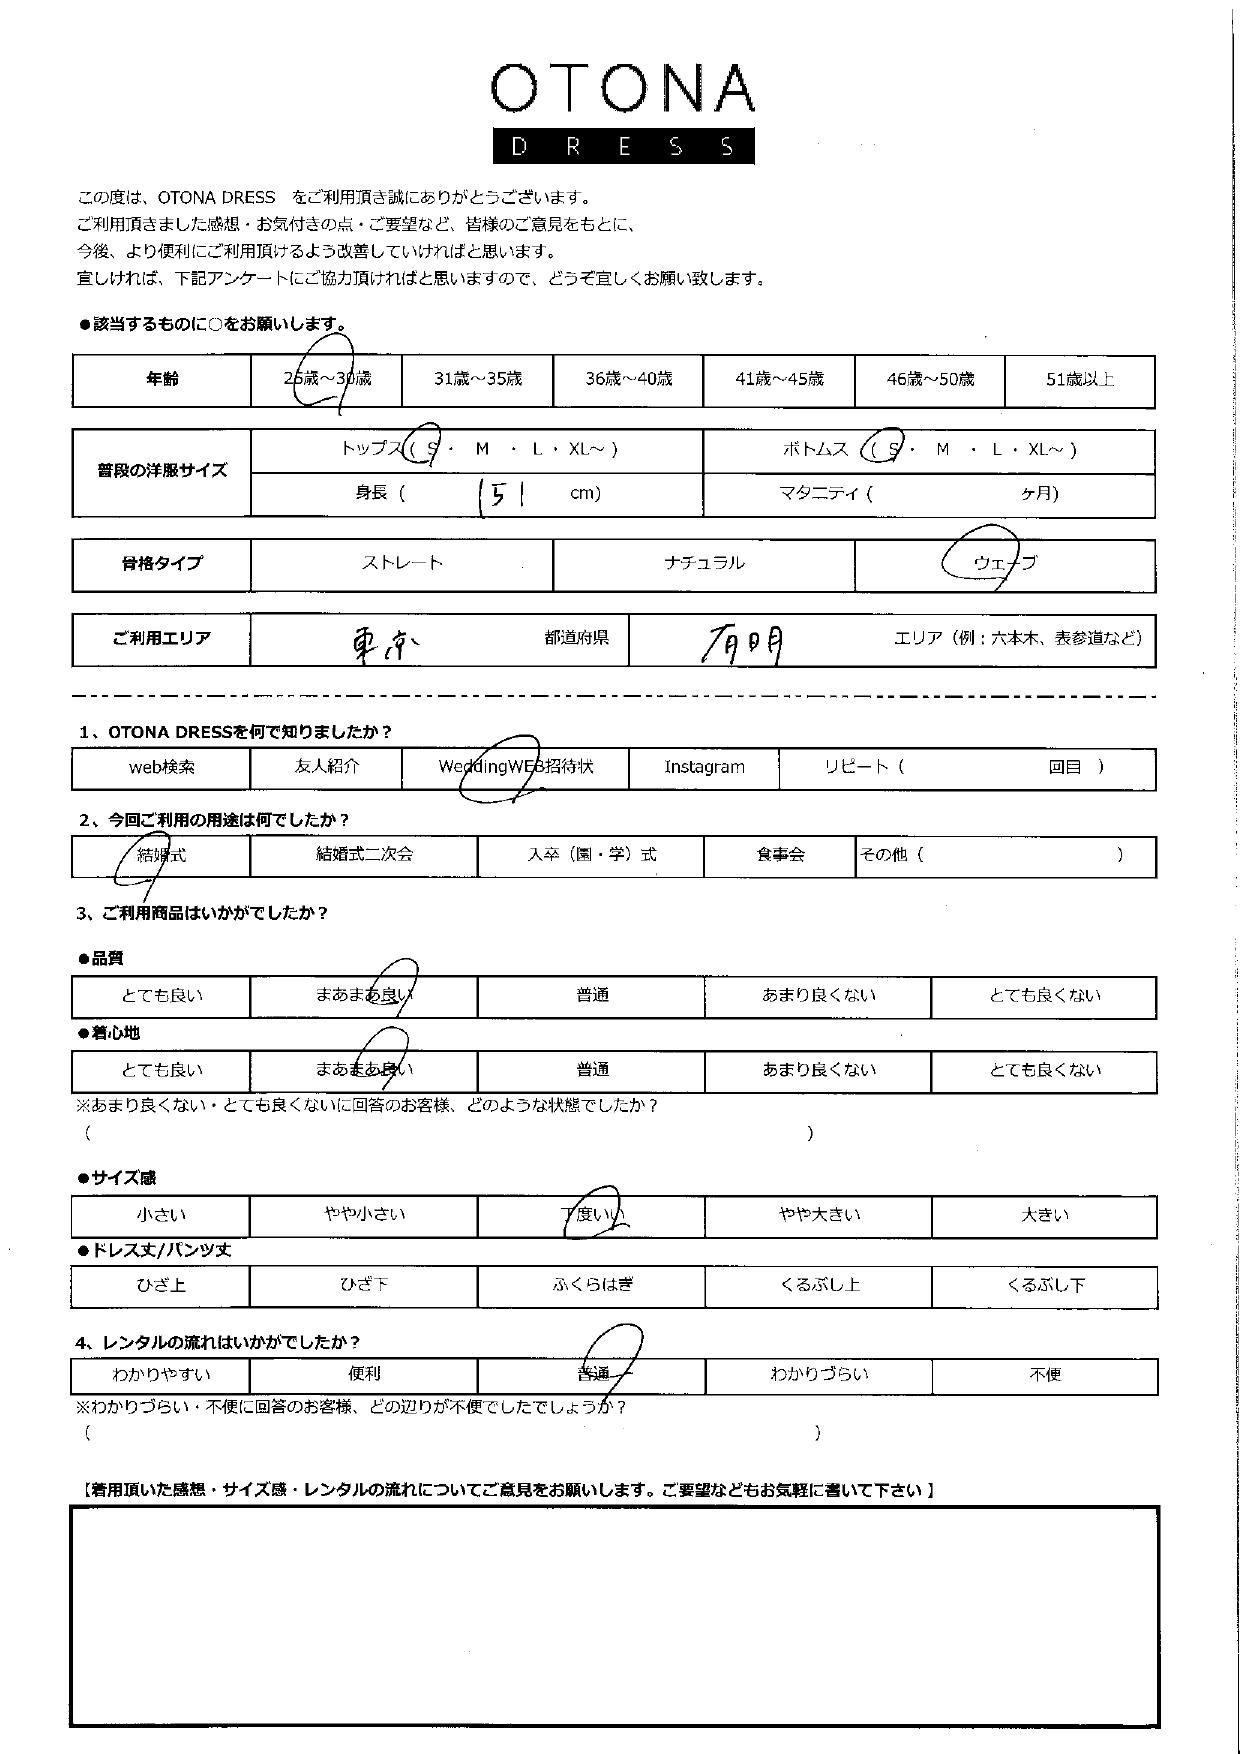 OTONA
DRESS
この度は、OTONA DRESS　をご利用頂き誠にありがとうございます。
ご利用頂きました感想・お気付きの点・ご要望など、皆様のご意見をもとに、
今後、より便利にご利用頂けるよう改善していければと思います。
宜しければ、下記アンケートにご協力頂ければと思いますので、どうぞ宜しくお願い致します。
●該当するものに○をお願いします。
年齢 25歳～30歳 31歳～35歳 36歳～40歳 41歳～45歳 46歳～50歳 51歳以上
普段の洋服サイズ
トップス( S ・ M ・ L ・ XL～ ) ボトムス ( S ・ M ・ L ・ XL～ )
身長 ( 151 cm) マタニティ ( ヶ月)
骨格タイプ ストレート ナチュラル ウェーブ
ご利用エリア 東京 都道府県 有明 エリア（例：六本木、表参道など）
1、OTONA DRESSを何で知りましたか？
web検索 友人紹介 WeddingWEB招待状 Instagram リピート（ 回目 ）
2、今回ご利用の用途は何でしたか？
結婚式 結婚式二次会 入卒（園・学）式 食事会 その他（ ）
3、ご利用商品はいかがでしたか？
●品質
とても良い まあまあ良い 普通 あまり良くない とても良くない
●着心地
とても良い まあまあ良い 普通 あまり良くない とても良くない
※あまり良くない・とても良くないに回答のお客様、どのような状態でしたか？
（ ）
●サイズ感
小さい やや小さい 丁度いい やや大きい 大きい
●ドレス丈/パンツ丈
ひざ上 ひざ下 ふくらはぎ くるぶし上 くるぶし下
4、レンタルの流れはいかがでしたか？
わかりやすい 便利 普通 わかりづらい 不便
※わかりづらい・不便に回答のお客様、どの辺りが不便でしたでしょうか？
（ ）
【着用頂いた感想・サイズ感・レンタルの流れについてご意見をお願いします。ご要望などもお気軽に書いて下さい】